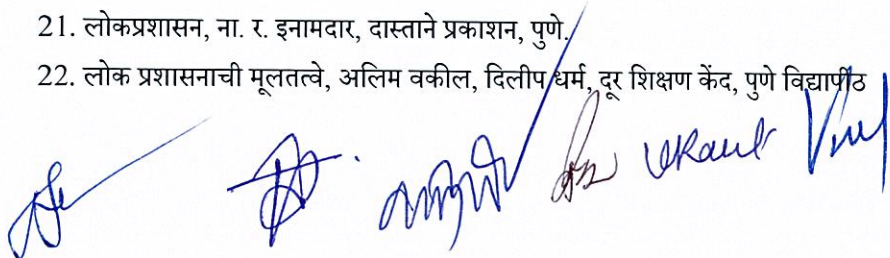 21. लोकप्रशासन, ना. र. इनामदार, दास्ताने प्रकाशन, पुणे.
22. लोक प्रशासनाची मूलतत्वे, अलिम वकील, दिलीप धर्म, दूर शिक्षण केंद, पुणे विद्यापीठ